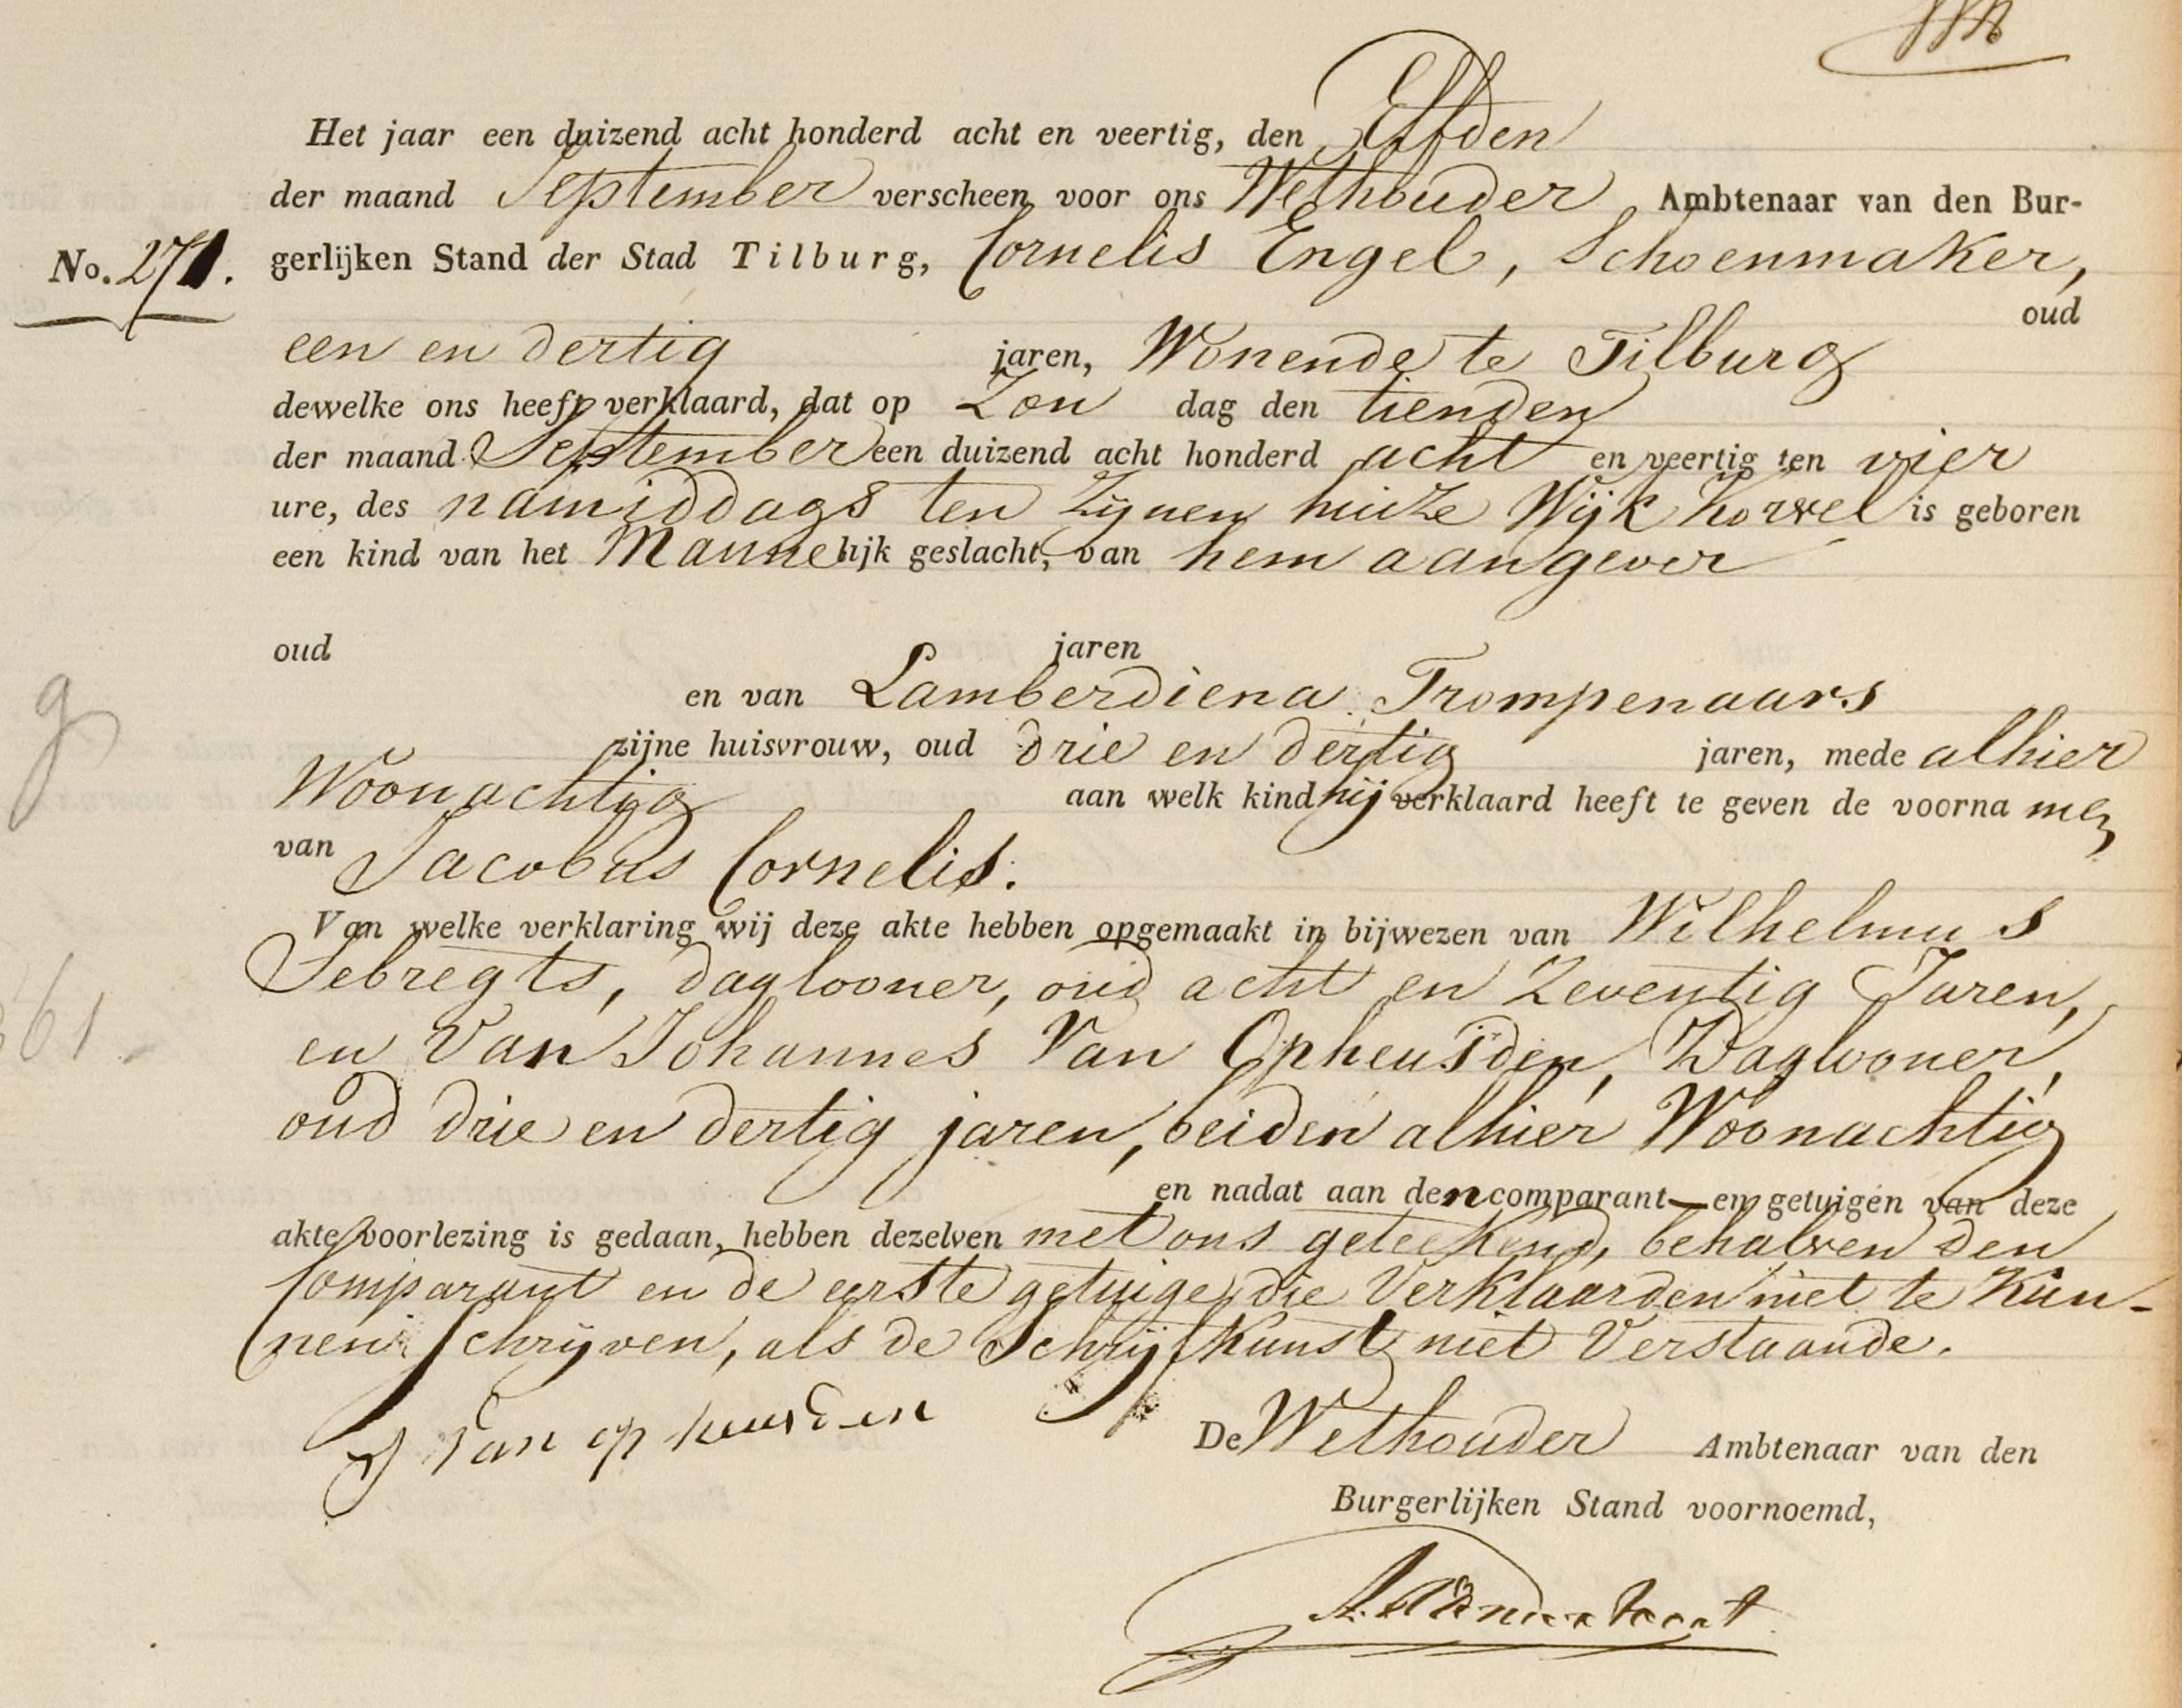 Het jaar een duizend acht honderd acht en veertig, den Elfden
der maand September verscheen voor ons Wethouder Ambtenaar van den Bur-
No. 271. gerlijken Stand der Stad Tilburg, Cornelis Engel, Schoenmaker,
oud
een en dertig jaren, Wonende te Tilburg
dewelke ons heeft verklaard, dat op Zon dag den tienden
der maand September een duizend acht honderd acht en veertig ten vier
ure, des namiddags ten Zijnen huize Wijk Korvel is geboren
een kind van het Mannelijk geslacht, van hem aangever
oud jaren
en van Lamberdiena Trompenaars
zijne huisvrouw, oud drie en dertig jaren, mede alhier
Woonachtig aan welk kind hij verklaard heeft te geven de voorna men
van Jacobus Cornelis.
Van welke verklaring wij deze akte hebben opgemaakt in bijwezen van Wilhelmus
Sebregts, daglooner, oud acht en Zeventig Jaren,
en Van Johannes Van Opheusden, Daglooner,
oud drie en dertig jaren, beiden alhier Woonachtig
en nadat aan den comparant en getuigen van deze
akte voorlezing is gedaan, hebben dezelven met ons geteekend, behalven den
Comparant en de eerste getuige, die Verklaarden niet te Kun-
nen Schrijven, als de Schrijfkunst niet Verstaande.
J Van op heusden
De Wethouder Ambtenaar van den
Burgerlijken Stand voornoemd,
g
361